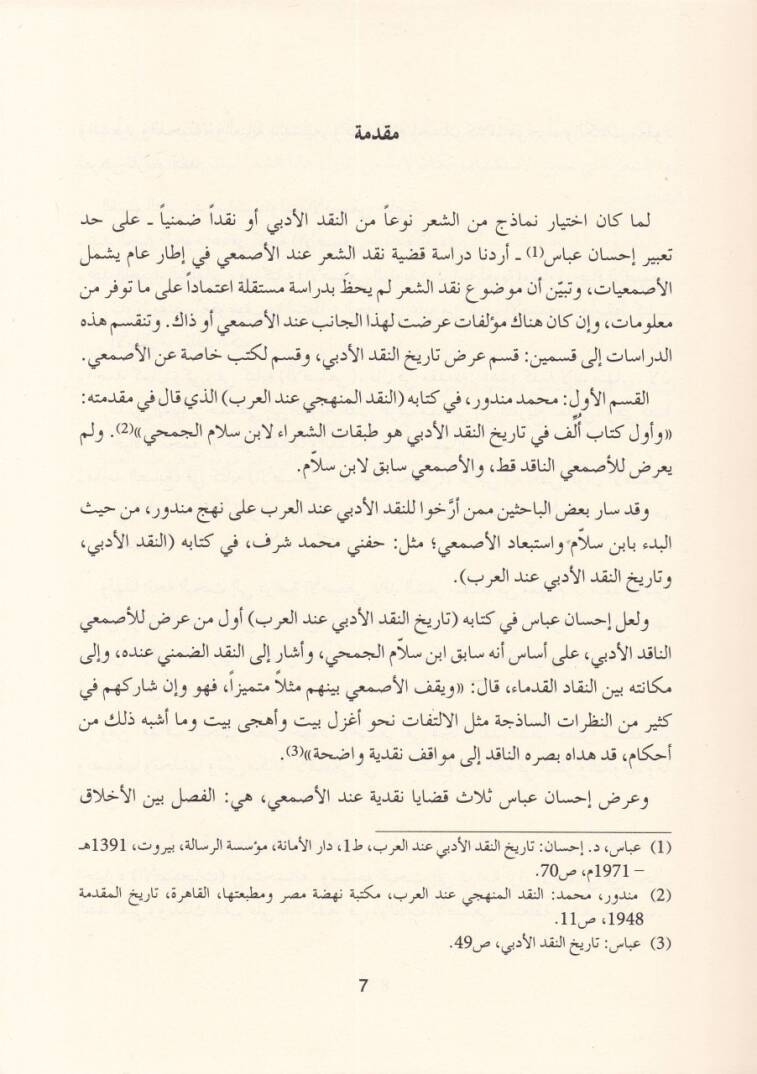 مقدمة
لما كان اختيار نماذج من الشعر نوعاً من النقد الأدبي أو نقداً ضمنياً ـ على حد
تعبير إحسان عباس(1) ـ أردنا دراسة قضية نقد الشعر عند الأصمعي في إطار عام يشمل
الأصمعيات، وتبيّن أن موضوع نقد الشعر لم يحظَ بدراسة مستقلة اعتماداً على ما توفر من
معلومات، وإن كان هناك مؤلفات عرضت لهذا الجانب عند الأصمعي أو ذاك. وتنقسم هذه
الدراسات إلى قسمين: قسم عرض تاريخ النقد الأدبي، وقسم لكتب خاصة عن الأصمعي.
القسم الأول: محمد مندور، في كتابه (النقد المنهجي عند العرب) الذي قال في مقدمته:
«وأول كتاب أُلِّف في تاريخ النقد الأدبي هو طبقات الشعراء لابن سلام الجمحي»(2). ولم
يعرض للأصمعي الناقد قط، والأصمعي سابق لابن سلاّم.
وقد سار بعض الباحثين ممن أرَّخوا للنقد الأدبي عند العرب على نهج مندور، من حيث
البدء بابن سلاّم واستبعاد الأصمعي؛ مثل: حفني محمد شرف، في كتابه (النقد الأدبي،
وتاريخ النقد الأدبي عند العرب).
ولعل إحسان عباس في كتابه (تاريخ النقد الأدبي عند العرب) أول من عرض للأصمعي
الناقد الأدبي، على أساس أنه سابق ابن سلاّم الجمحي، وأشار إلى النقد الضمني عنده، وإلى
مكانته بين النقاد القدماء، قال: «ويقف الأصمعي بينهم مثلاً متميزاً، فهو وإن شاركهم في
كثير من النظرات الساذجة مثل الالتفات نحو أغزل بيت وأهجى بيت وما أشبه ذلك من
أحكام، قد هداه بصره الناقد إلى مواقف نقدية واضحة»(3).
وعرض إحسان عباس ثلاث قضايا نقدية عند الأصمعي، هي: الفصل بين الأخلاق
(1) عباس، د. إحسان: تاريخ النقد الأدبي عند العرب، ط1، دار الأمانة، مؤسسة الرسالة، بيروت، 1391هـ
– 1971م، ص70.
(2) مندور، محمد: النقد المنهجي عند العرب، مكتبة نهضة مصر ومطبعتها، القاهرة، تاريخ المقدمة
1948، ص11.
(3) عباس: تاريخ النقد الأدبي، ص49.
7